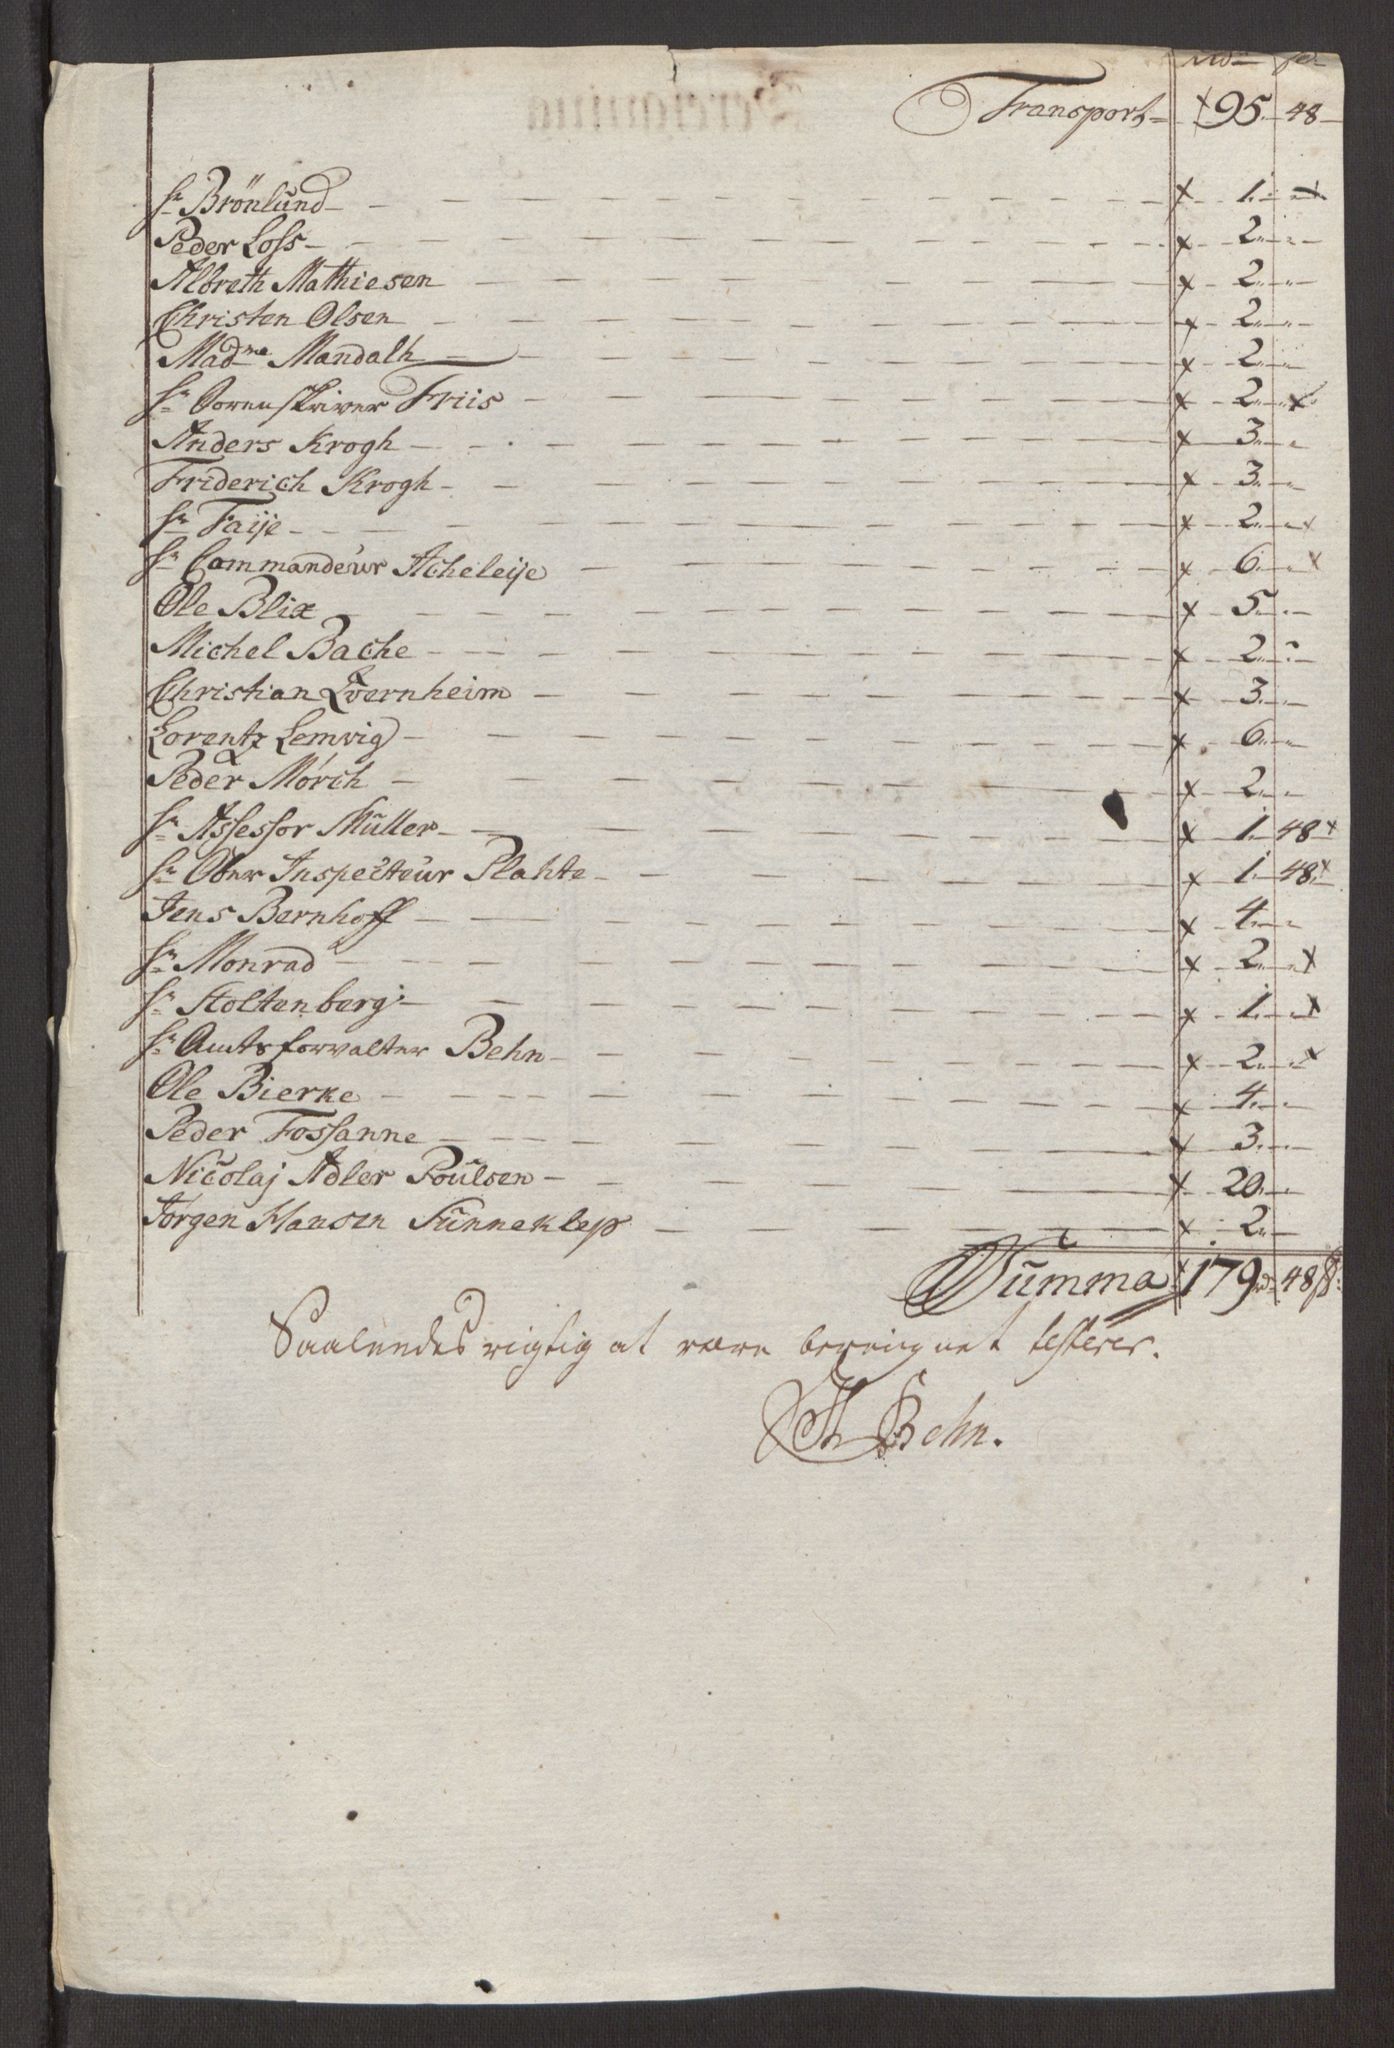 rdr sk
Transport 95 48
Hr Brönlund 1
Peder Loss 2
Albreth Mathiesen 2
Christen Olsen 2
Madme Mandalh 2
Hr Sorenskriver Friis 2
Anders Krogh 3
Friderich Krogh 3
Hr Faije 2
Hr Commandeur Acheleije 6
Ole Blix 5
Michel Bache 2
Christian Qvernheim 3
Lorentz Lemvig 6
Peder Mörch 2
Hr Assessor Müller 1 48
Hr Ober Inspecteur Plahte 1 48
Jens Bernhoff 4
Hr Monrad 2
Hr Stoltenberg 1
Hr Amtsforvalter Behn 2
Ole Bierke 4
Peder Fossanne 3
Nicolaj Adler Poulsen 20
Jørgen Hansen Funneklep 2
Summa 179 rdr 48 sk
Saaledes rigtig at være beregnet testerer.
Behn.